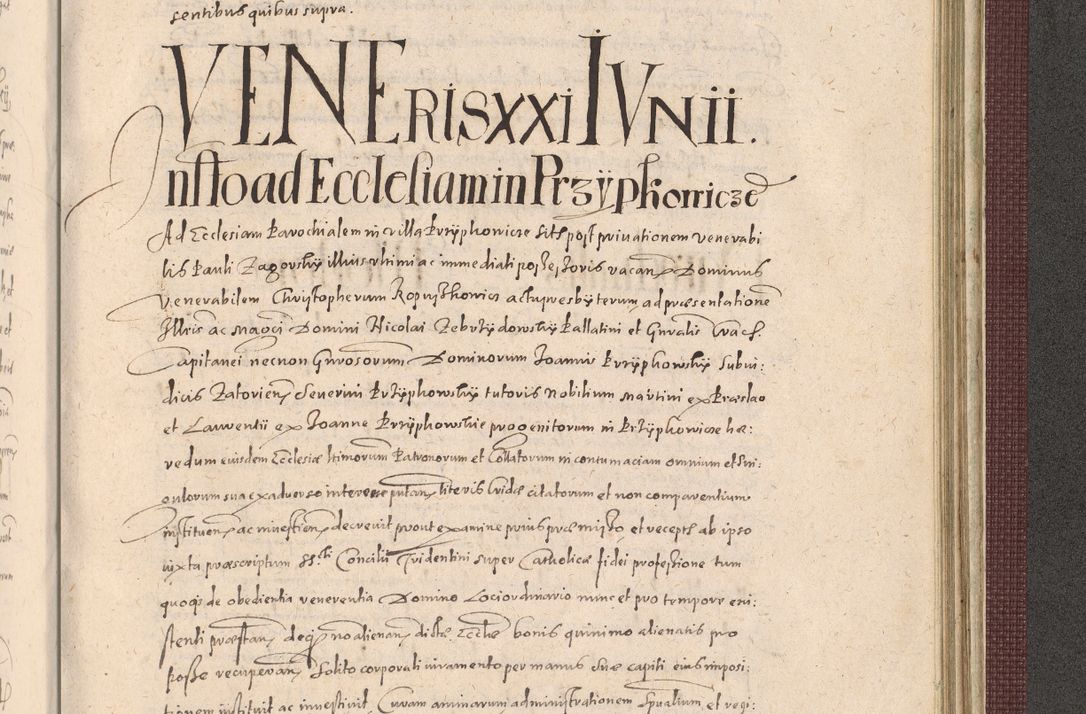 sentibus quibus supra.
VENERIS XXI IVNII.
Instto ad Ecclesiam in Przÿphowicze
Ad Ecclesiam Parochialem in villa Przÿphowicze sitã post priuationem venerabi
lis Pauli Zagorskÿ illius vltimi ac immediati possessoris vacan̄ Dominus
Venerabilem Christopherum Kopuſthowicz actu presbyterum ad præsentationẽ
Illris ac Magci Domini Nicolai Zebrzÿdowskÿ Pallatini et Gnralis Crac̃.
Capitanei necnon Gnrosorum Dominorum Joannis Przÿphowskÿ Subiu:
dicis Zatorien̄ Seuerini Przÿphowskÿ tutoris Nobilium Martini ex Præslao
et Laurentii ex Joanne Przÿphowskie progenitorum in Przÿphowicze hæ:
redum eiusdem Ecclesiæ ltimorum Patronorum et Collatorum in contumaciam omnium et sin:
gulorum sua ex aduerso interesse putan̄ literis Cridæ citatorum et non comparentium
instituen̄ ac inuestien̄ decreuit prout examine prius præmisso et recepta ab ipso
iuxta præscriptum SS.ti Concilii Tridentini super Catholicæ fidei professione tum
quoq; de obedientia reuerentia Domino Lociordinario nunc et pro tempore exi:
stenti præstan̄ deq; no alienan̄ dictæ Ecctæ bonis quinimo alienatis pro
posse recuperan̄ solito corporali iuramento per manus suæ capiti eius imposi:
tionem instituit ac inuestiuit Curam animarum administrationem Spualium et regi: